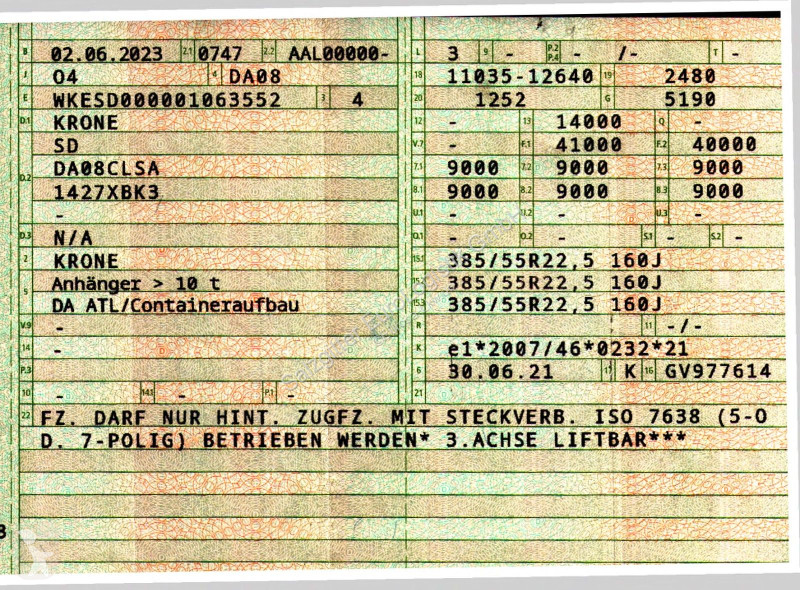 B 02.06.2023 2.1 0747 2.2 AAL00000- L 3 9 - P.2 P.4 - /- T -
J 04 4 DA08 18 11035-12640 19 2480
E WKESD000001063552 3 4 20 1252 G 5190
D.1 KRONE 12 - 13 14000 Q -
SD V.7 - F.1 41000 F.2 40000
D.2 DA08CLSA 7.1 9000 7.2 9000 7.3 9000
1427XBK3 8.1 9000 8.2 9000 8.3 9000
- U.1 - U.2 - U.3 -
D.3 N/A O.1 - O.2 - S.1 - S.2 -
2 KRONE 15.1 385/55R22,5 160J
5 Anhänger > 10 t 15.2 385/55R22,5 160J
DA ATL/Containeraufbau 15.3 385/55R22,5 160J
V.9 - R 11 -/-
14 - K e1*2007/46*0232*21
P.3 6 30.06.21 17 K 16 GV977614
10 - 14.1 - P.1 - 21
22 FZ. DARF NUR HINT. ZUGFZ. MIT STECKVERB. ISO 7638 (5-O
D. 7-POLIG) BETRIEBEN WERDEN* 3.ACHSE LIFTBAR***